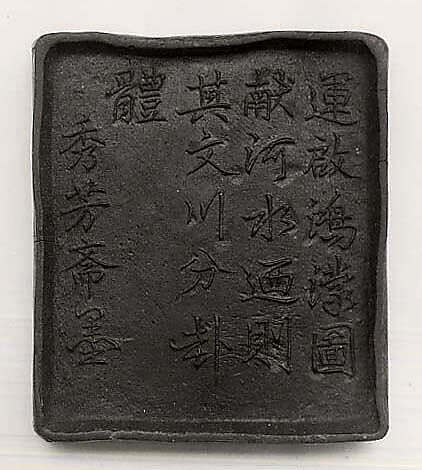 運啟鴻濛圖
献河水迺則
其文川分卦
體
秀芳斋墨